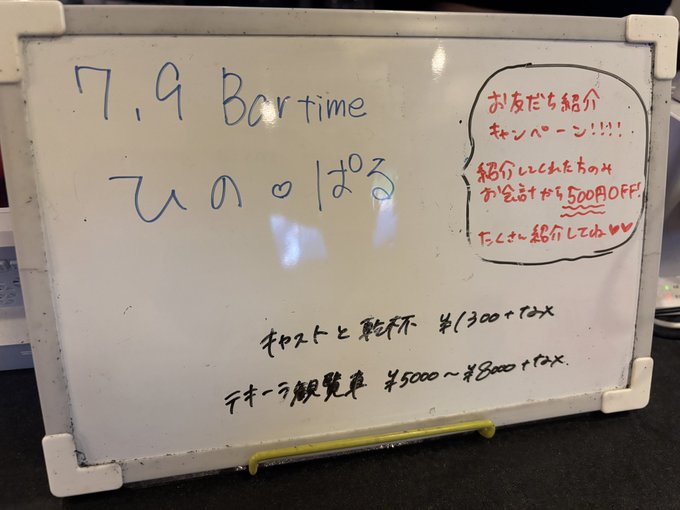 7.9 Bar time
ひの♡ぱる
お友だち紹介
キャンペーン!!!!
紹介してくれたちのみ
お会計から500円OFF!
たくさん紹介してね♥♥
キャストと乾杯 ¥1300+tax
テキーラ観覧車 ¥5000~¥8000+tax.